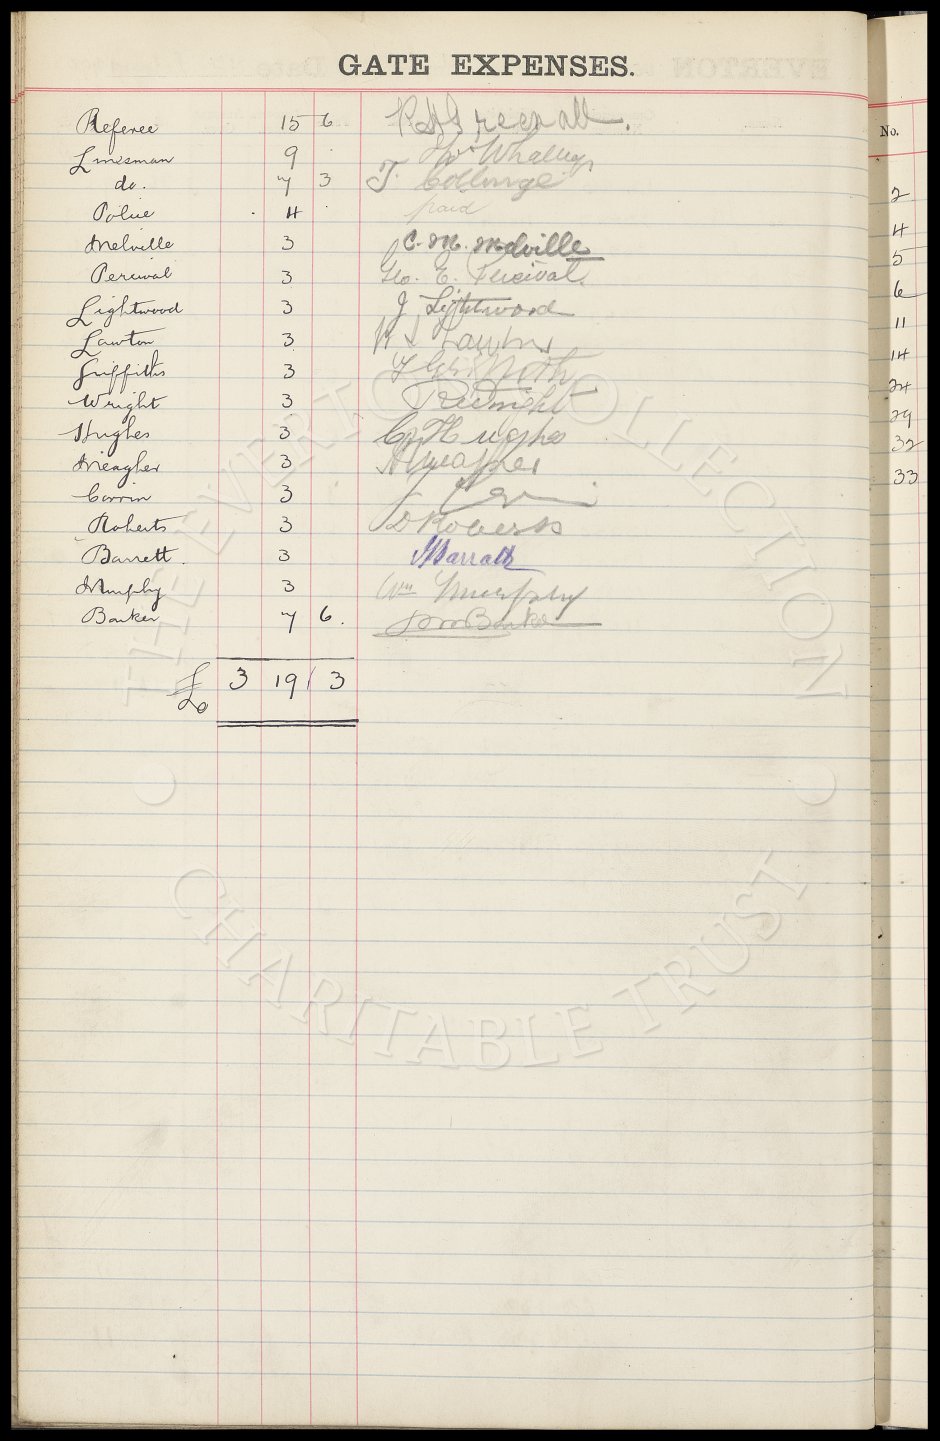 GATE EXPENSES.
Referee 15 6
Linesman 9 Whalley
do. 7 3 T. Collinge
Police 4 paid
Melville 3 C. M. Melville
Percival 3 Geo. E. Percival
Lightwood 3 J Lightwood
Lawton 3 Lawton
Griffiths 3
Wright 3
Hughes 3 Hughes
Meagher 3 Meagher
Corrin 3
Roberts 3 D Roberts
Barrett. 3
Murphy 3 Wm Murphy
Barker 7 6. Barker
£ 3 19 3
No.
2
4
5
6
11
14
24
29
32
33
THE EVERTON COLLECTION
CHARITABLE TRUST